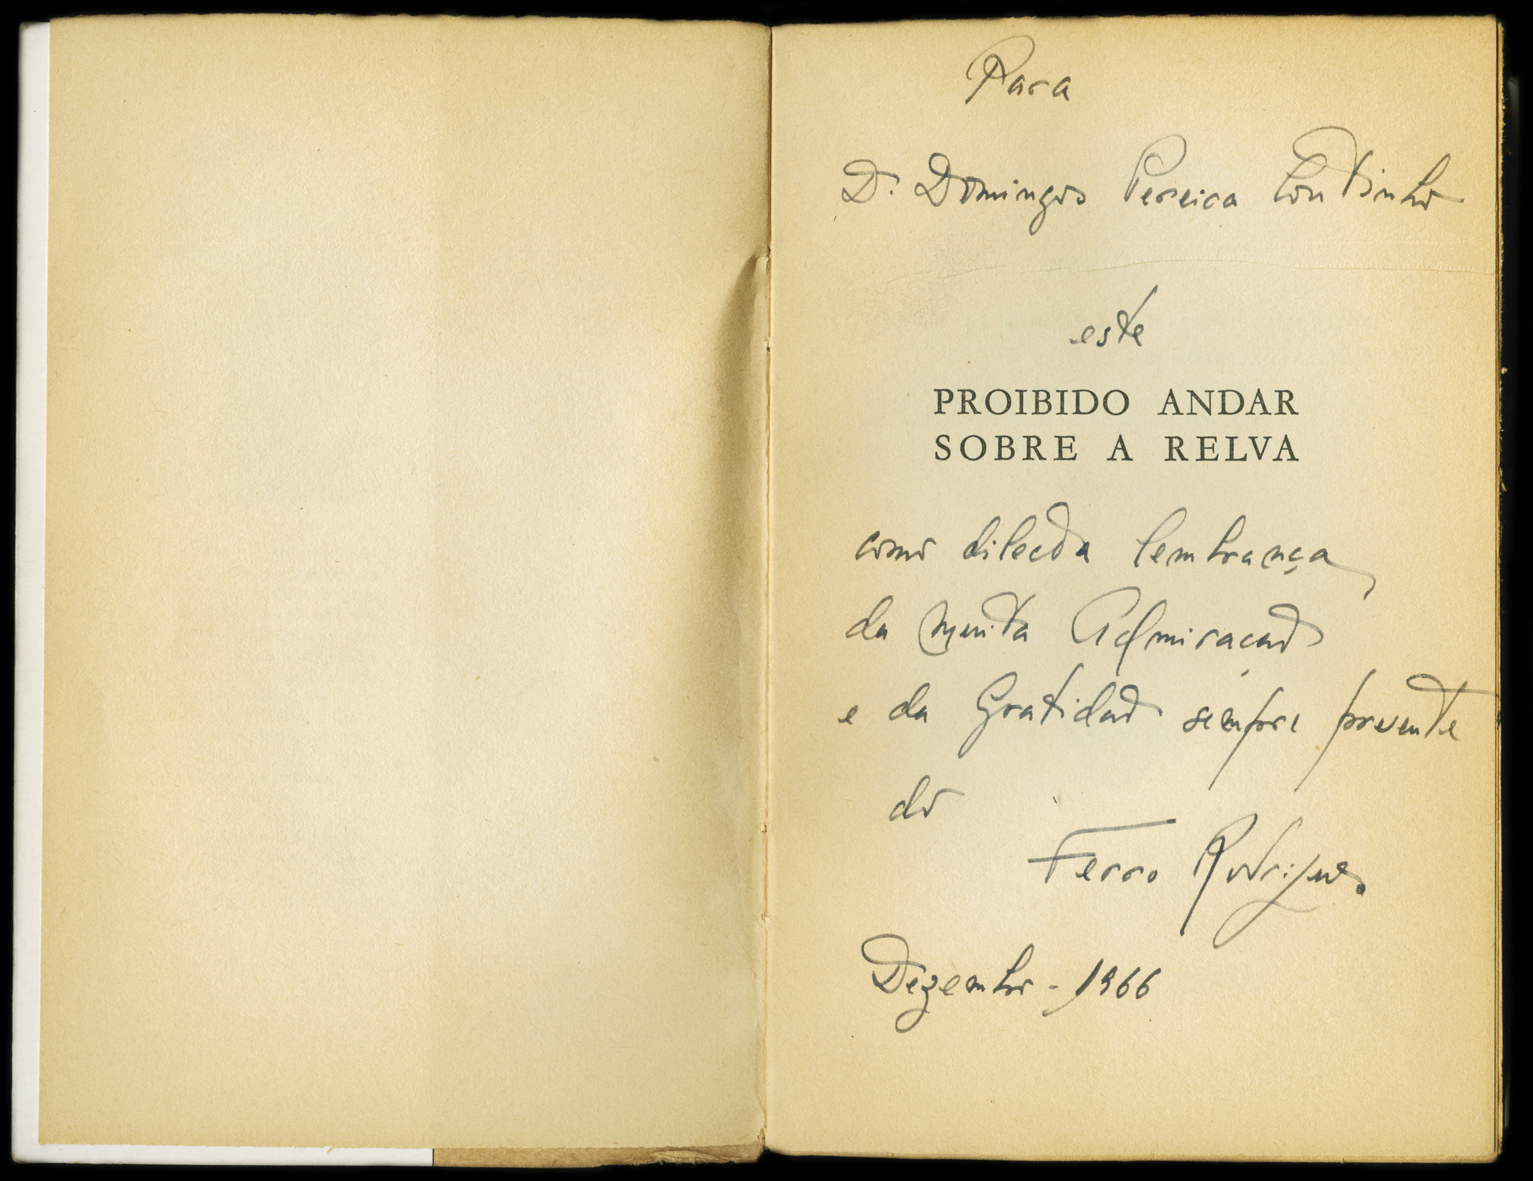 Para
D. Domingos Pereira Coutinho
este
PROIBIDO ANDAR
SOBRE A RELVA
como dilecta lembrança
da muita Admiração
e da Gratidão sempre presente
do
Ferro Rodrigues
Dezembro - 1966